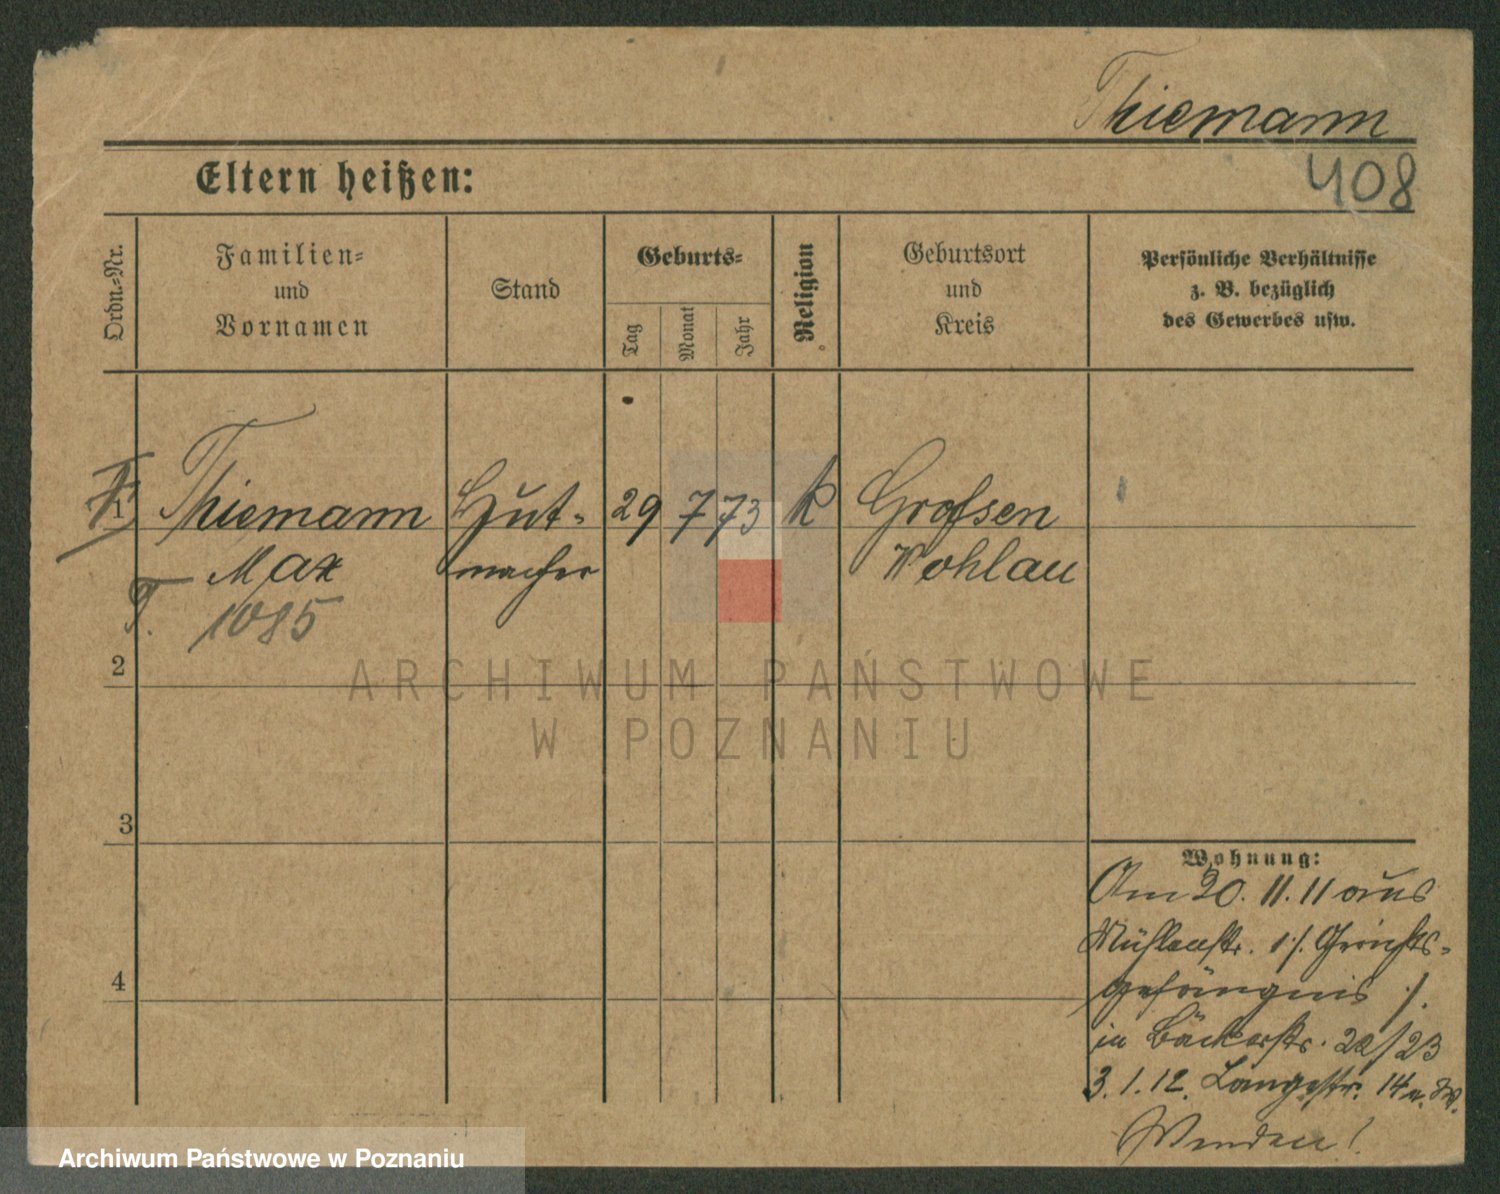 Thiemann
408
Eltern heißen:
Ordn.-Nr.
Familien-
und
Vornamen
Stand
Geburts-
Tag
Monat
Jahr
Religion
Geburtsort
und
Kreis
Persönliche Verhältnisse
z. B. bezüglich
des Gewerbes usw.
1 Thiemann Hut- 29 7 73 k Grossen
Max macher Wohlau
T. 1085
2
3
4
Wohnung:
Am 20. 11. 11 aus
Mühlenstr. 1 /. Gerichts-
gefängnis ./.
in Bäckerstr. 22/23
3. 1. 12. Langestr. 14
Wenden!
ARCHIWUM PAŃSTWOWE
W POZNANIU
Archiwum Państwowe w Poznaniu